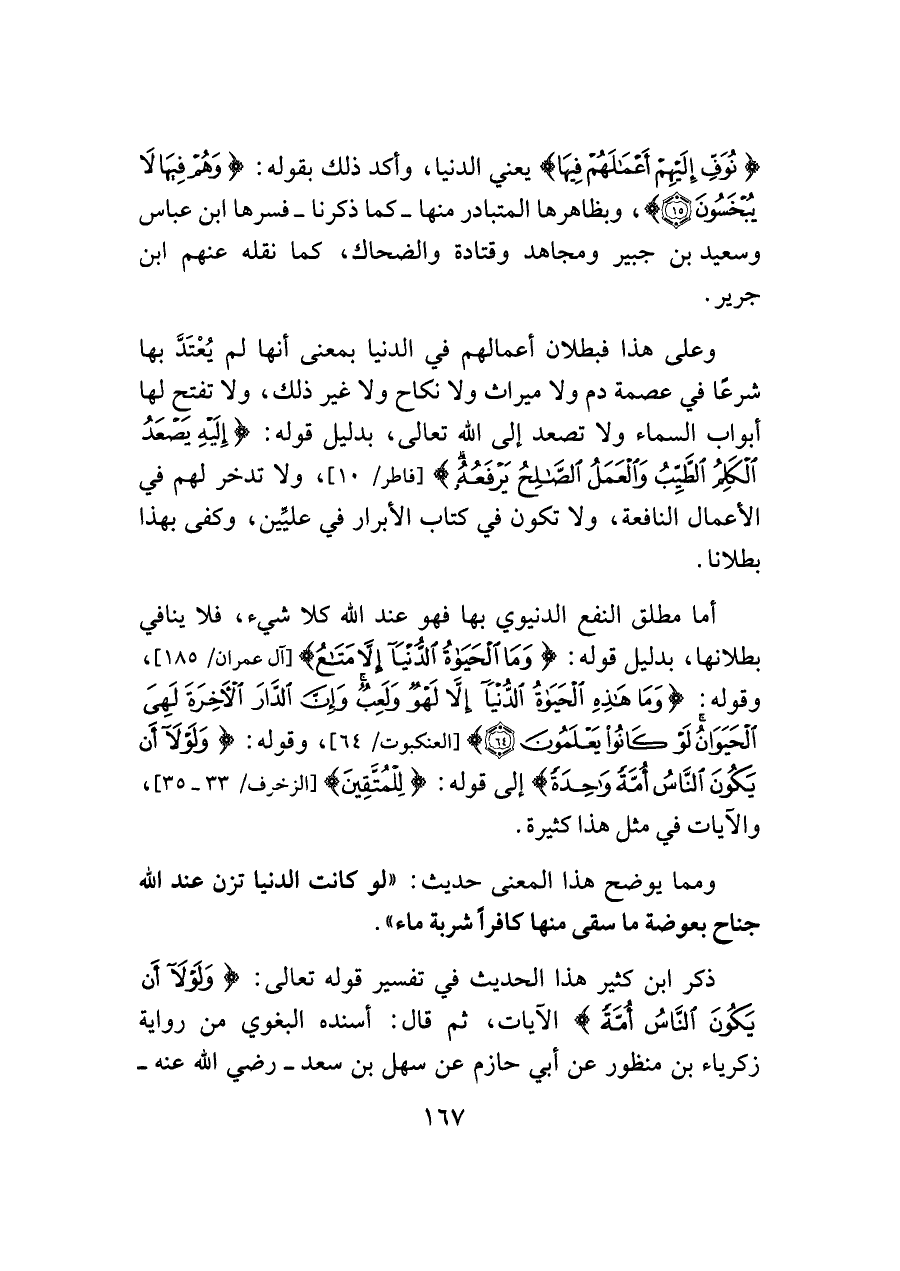 ﴿ نُوَفِّ إِلَيْهِمْ أَعْمَٰلَهُمْ فِيهَا﴾ يعني الدنيا، وأكد ذلك بقوله: ﴿ وَهُمْ فِيهَا لَا
يُبْخَسُونَ ١٥﴾، وبظاهرها المتبادر منها ـ كما ذكرنا ـ فسرها ابن عباس
وسعيد بن جبير ومجاهد وقتادة والضحاك، كما نقله عنهم ابن
جرير.
وعلى هذا فبطلان أعمالهم في الدنيا بمعنى أنها لم يُعْتَدَّ بها
شرعًا في عصمة دم ولا ميراث ولا نكاح ولا غير ذلك، ولا تفتح لها
أبواب السماء ولا تصعد إلى الله تعالى، بدليل قوله: ﴿ إِلَيْهِ يَصْعَدُ
ٱلْكَلِمُ ٱلطَّيِّبُ وَٱلْعَمَلُ ٱلصَّٰلِحُ يَرْفَعُهُۥۚ ﴾ [فاطر/ ١٠]، ولا تدخر لهم في
الأعمال النافعة، ولا تكون في كتاب الأبرار في عليِّين، وكفى بهذا
بطلانا.
أما مطلق النفع الدنيوي بها فهو عند الله كلا شيء، فلا ينافي
بطلانها، بدليل قوله: ﴿ وَمَا ٱلْحَيَوٰةُ ٱلدُّنْيَآ إِلَّا مَتَٰعُ﴾ [آل عمران/ ١٨٥]،
وقوله: ﴿ وَمَا هَٰذِهِ ٱلْحَيَوٰةُ ٱلدُّنْيَآ إِلَّا لَهْوٌ وَلَعِبٌۚ وَإِنَّ ٱلدَّارَ ٱلْأٓخِرَةَ لَهِىَ
ٱلْحَيَوَانُۚ لَوْ كَانُوا۟ يَعْلَمُونَ ٦٤﴾ [العنكبوت/ ٦٤]، وقوله: ﴿ وَلَوْلَآ أَن
يَكُونَ ٱلنَّاسُ أُمَّةً وَٰحِدَةً﴾ إلى قوله: ﴿ لِلْمُتَّقِينَ﴾ [الزخرف/ ٣٣ ـ ٣٥]،
والآيات في مثل هذا كثيرة.
ومما يوضح هذا المعنى حديث: «لو كانت الدنيا تزن عند الله
جناح بعوضة ما سقى منها كافراً شربة ماء».
ذكر ابن كثير هذا الحديث في تفسير قوله تعالى: ﴿ وَلَوْلَآ أَن
يَكُونَ ٱلنَّاسُ أُمَّةً ﴾ الآيات، ثم قال: أسنده البغوي من رواية
زكرياء بن منظور عن أبي حازم عن سهل بن سعد ـ رضي الله عنه ـ
١٦٧